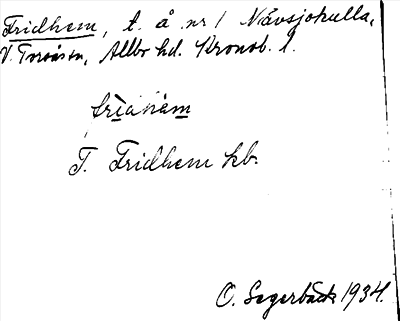 Fridhem, t. å nr 1 Nävsjökulla,
V. Torsås sn, Allbo hd. Kronob. l.
frìdhèm
T. Fridhem kb.
O. Segerbäck 1934.